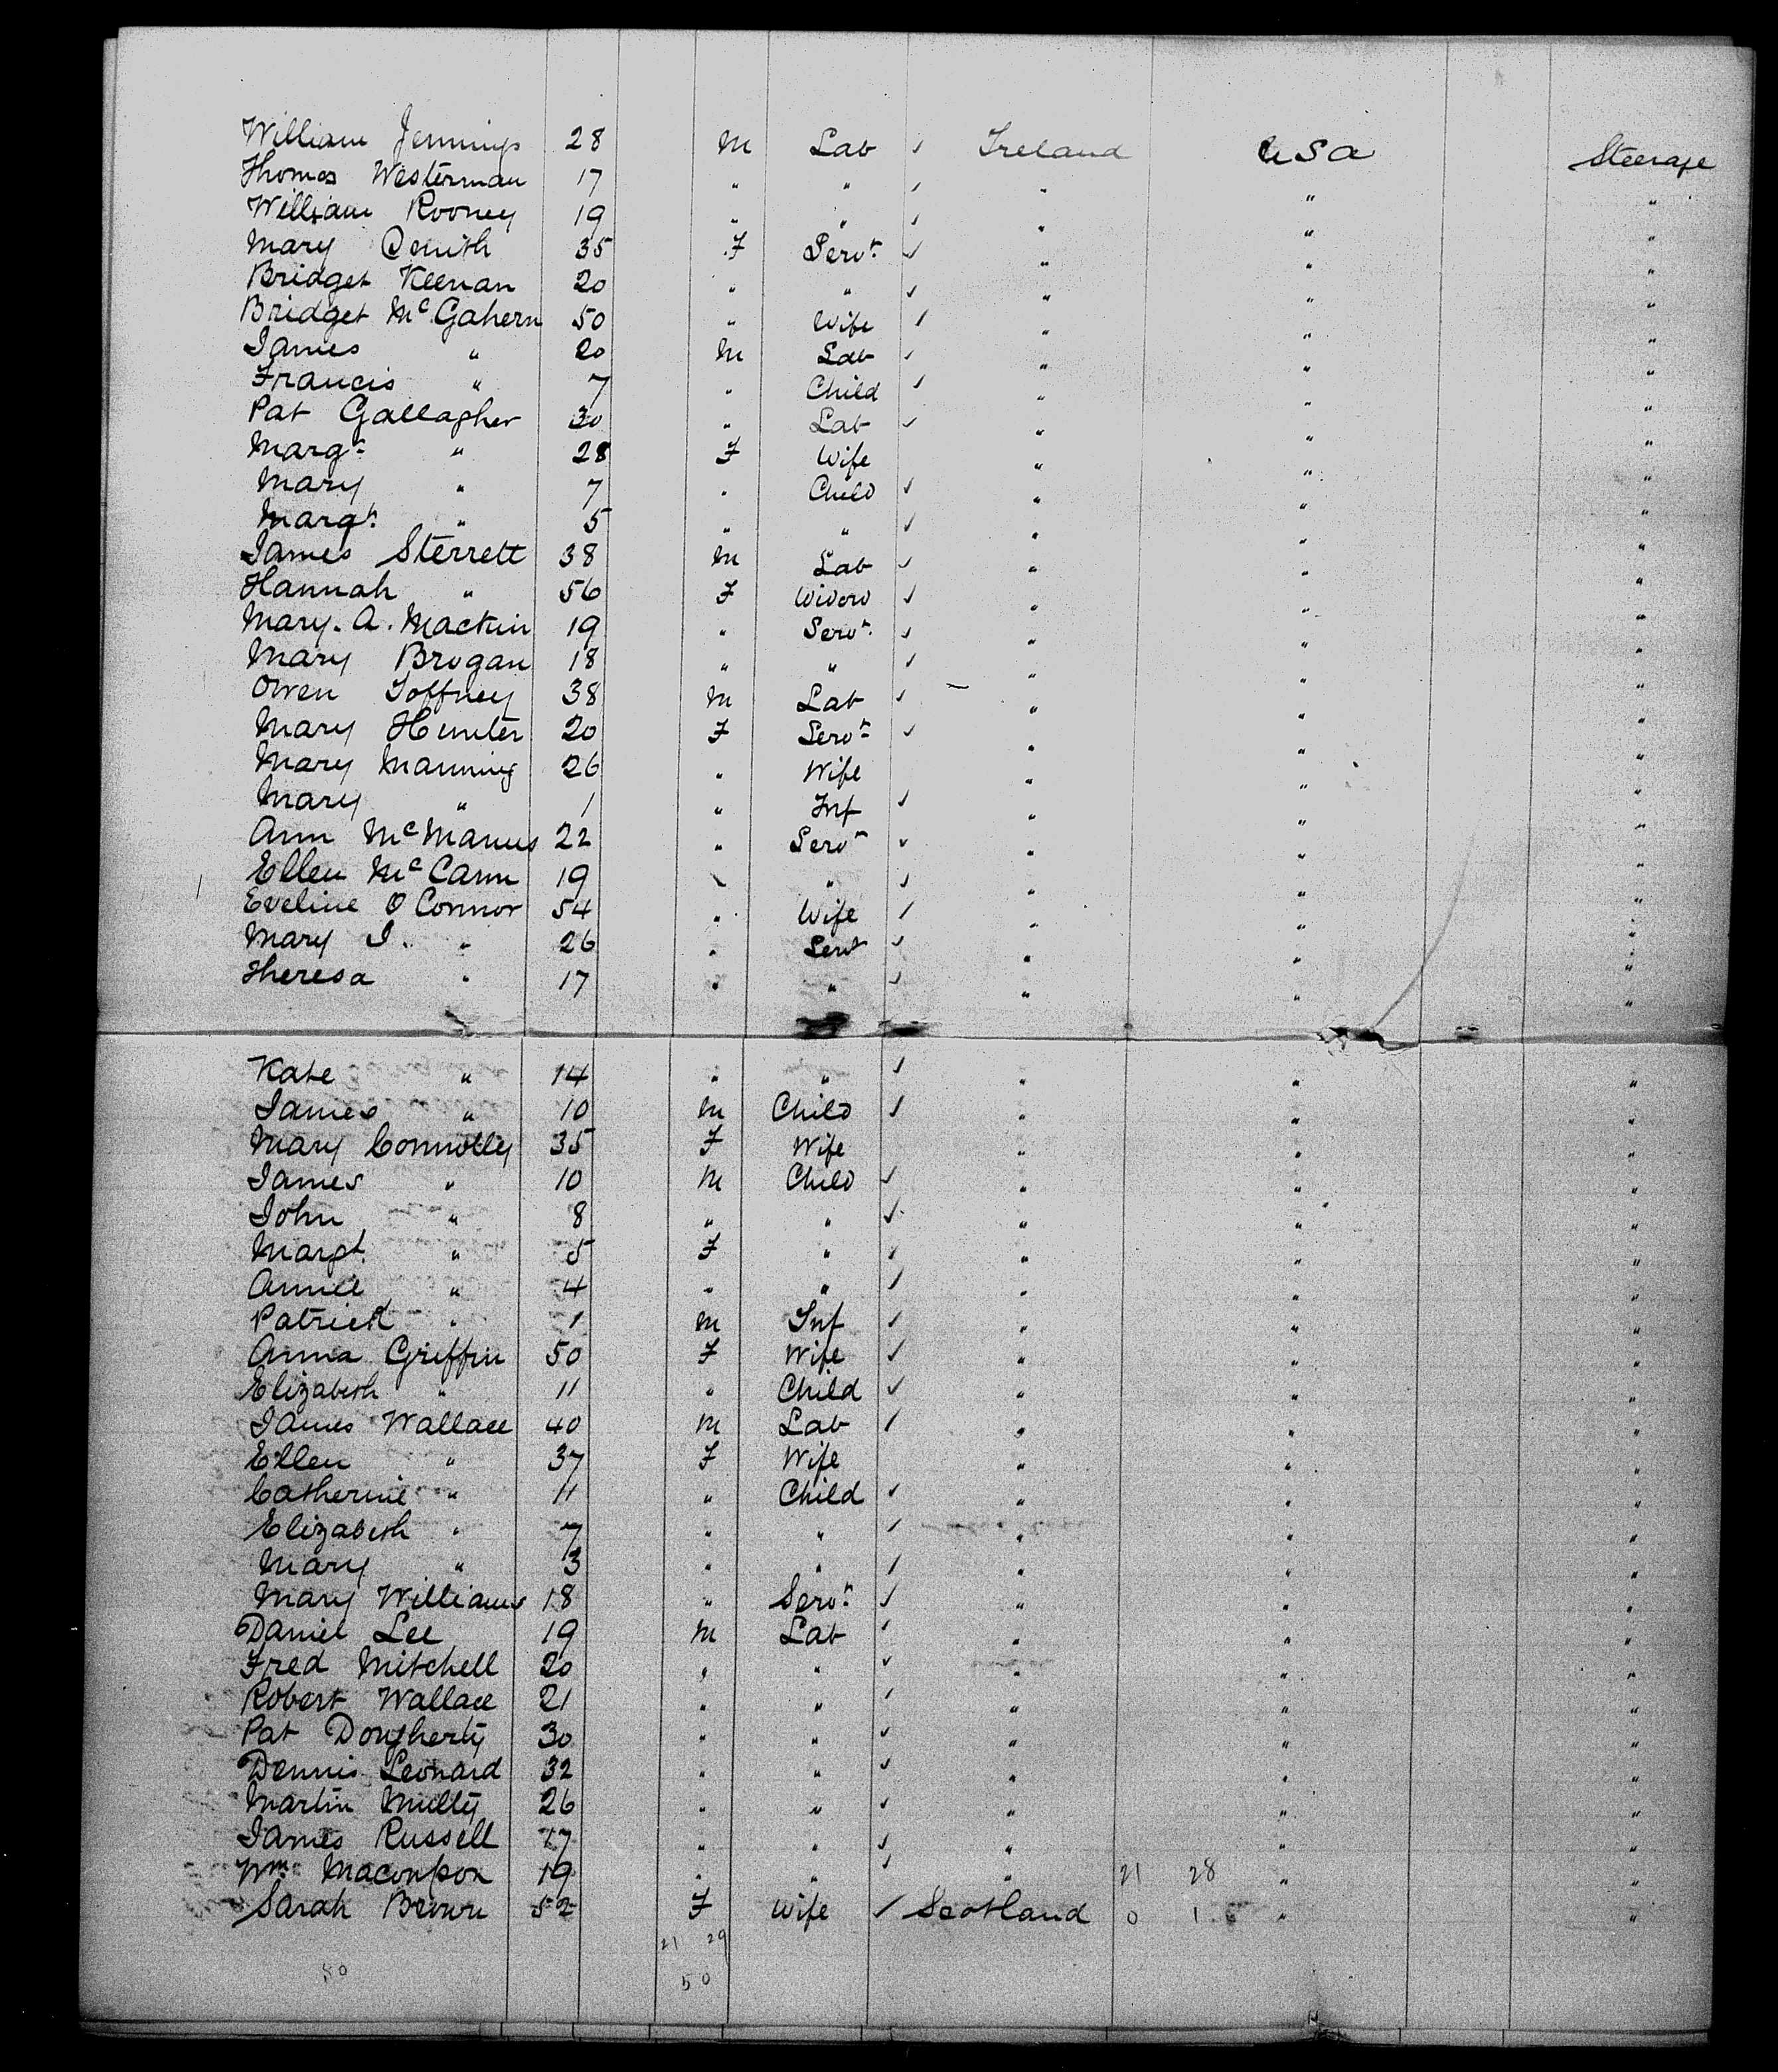 William Jennings 28 M Lab ✓ Ireland USA Steerage
Thomas Westerman 17 " " ✓ " " "
William Rooney 19 " " ✓ " " "
Mary Smith 35 F Servt ✓ " " "
Bridget Keenan 20 " " ✓ " " "
Bridget McGahern 50 " Wife ✓ " " "
James " 20 M Lab ✓ " " "
Francis " 7 " Child ✓ " " "
Pat Gallagher 30 " Lab ✓ " " "
Margt " 28 F Wife " " "
Mary " 7 " Child ✓ " " "
Margt " 5 " " ✓ " " "
James Sterrett 38 M Lab ✓ " " "
Hannah " 56 F Widow ✓ " " "
Mary. A. Mackin 19 " Servt ✓ " " "
Mary Brogan 18 " " ✓ " " "
Owen 38 M Lab ✓ " " "
Mary Hunter 20 F Servt ✓ " " "
Mary Manning 26 " Wife " " "
Mary " 1 " Inf ✓ " " "
Ann McManus 22 " Servt ✓ " " "
Ellen McCann 19 " " ✓ " " "
Eveline O Connor 54 " Wife ✓ " " "
Mary J. " 26 " Servt ✓ " " "
Theresa " 17 " " ✓ " " "
Kate " 14 " " ✓ " " "
James " 10 M Child ✓ " " "
Mary Connolly 35 F Wife " " "
James " 10 M Child ✓ " " "
John " 8 " " ✓ " " "
Margt " 5 F " ✓ " " "
Annie " 4 " " ✓ " " "
Patrick " 1 M Inf ✓ " " "
Anna Griffin 50 F Wife ✓ " " "
Elizabeth " 11 " Child ✓ " " "
James Wallace 40 M Lab ✓ " " "
Ellen " 37 F Wife " " "
Catherine " 11 " Child ✓ " " "
Elizabeth " 7 " " ✓ " " "
Mary " 3 " " ✓ " " "
Mary Williams 18 " Servt ✓ " " "
Daniel Lee 19 M Lab ✓ " " "
Fred Mitchell 20 " " ✓ " " "
Robert Wallace 21 " " ✓ " " "
Pat Dougherty 30 " " ✓ " " "
Dennis Leonard 32 " " ✓ " " "
Martin 26 " " ✓ " " "
James Russell 17 " " ✓ " " "
Wm 19 " " ✓ " 21 28 " "
Sarah Brown 52 F Wife ✓ Scotland 0 1 " "
21 29
50